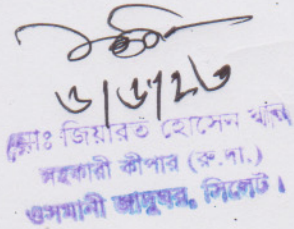 ৬/৬/২৩
মোঃ জিয়ারত হোসেন খান
সহকারী কীপার (রু.দা.)
ওসমানী জাদুঘর, সিলেট।